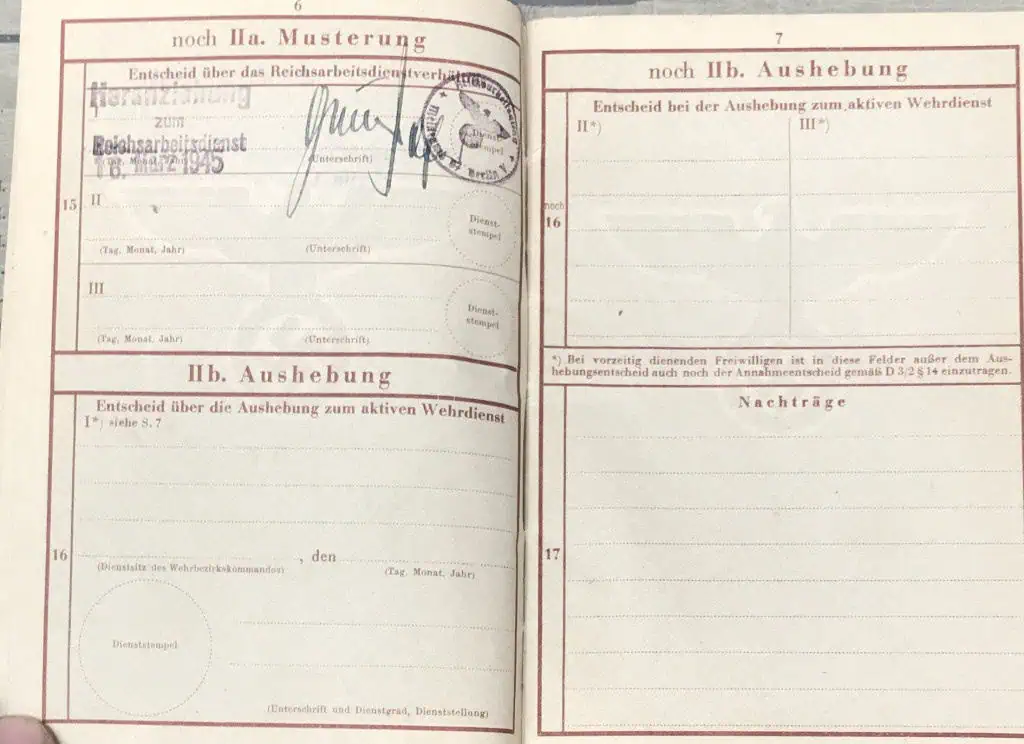 6
noch IIa. Musterung
Entscheid über das Reichsarbeitsdienstverhältnis
I
Heranziehung
zum
Reichsarbeitsdienst
16. März 1945
(Tag, Monat, Jahr)
(Unterschrift)
Dienst-
stempel
Berlin V
15
II
(Tag, Monat, Jahr)
(Unterschrift)
Dienst-
stempel
III
(Tag, Monat, Jahr)
(Unterschrift)
Dienst-
stempel
IIb. Aushebung
Entscheid über die Aushebung zum aktiven Wehrdienst
I*) siehe S. 7
16
, den
(Dienstsitz des Wehrbezirkskommandos)
(Tag, Monat, Jahr)
Dienststempel
(Unterschrift und Dienstgrad, Dienststellung)
7
noch IIb. Aushebung
Entscheid bei der Aushebung zum aktiven Wehrdienst
II*)
III*)
noch
16
*) Bei vorzeitig dienenden Freiwilligen ist in diese Felder außer dem Aus-
hebungsentscheid auch noch der Annahmeentscheid gemäß D 3/2 § 14 einzutragen.
Nachträge
17